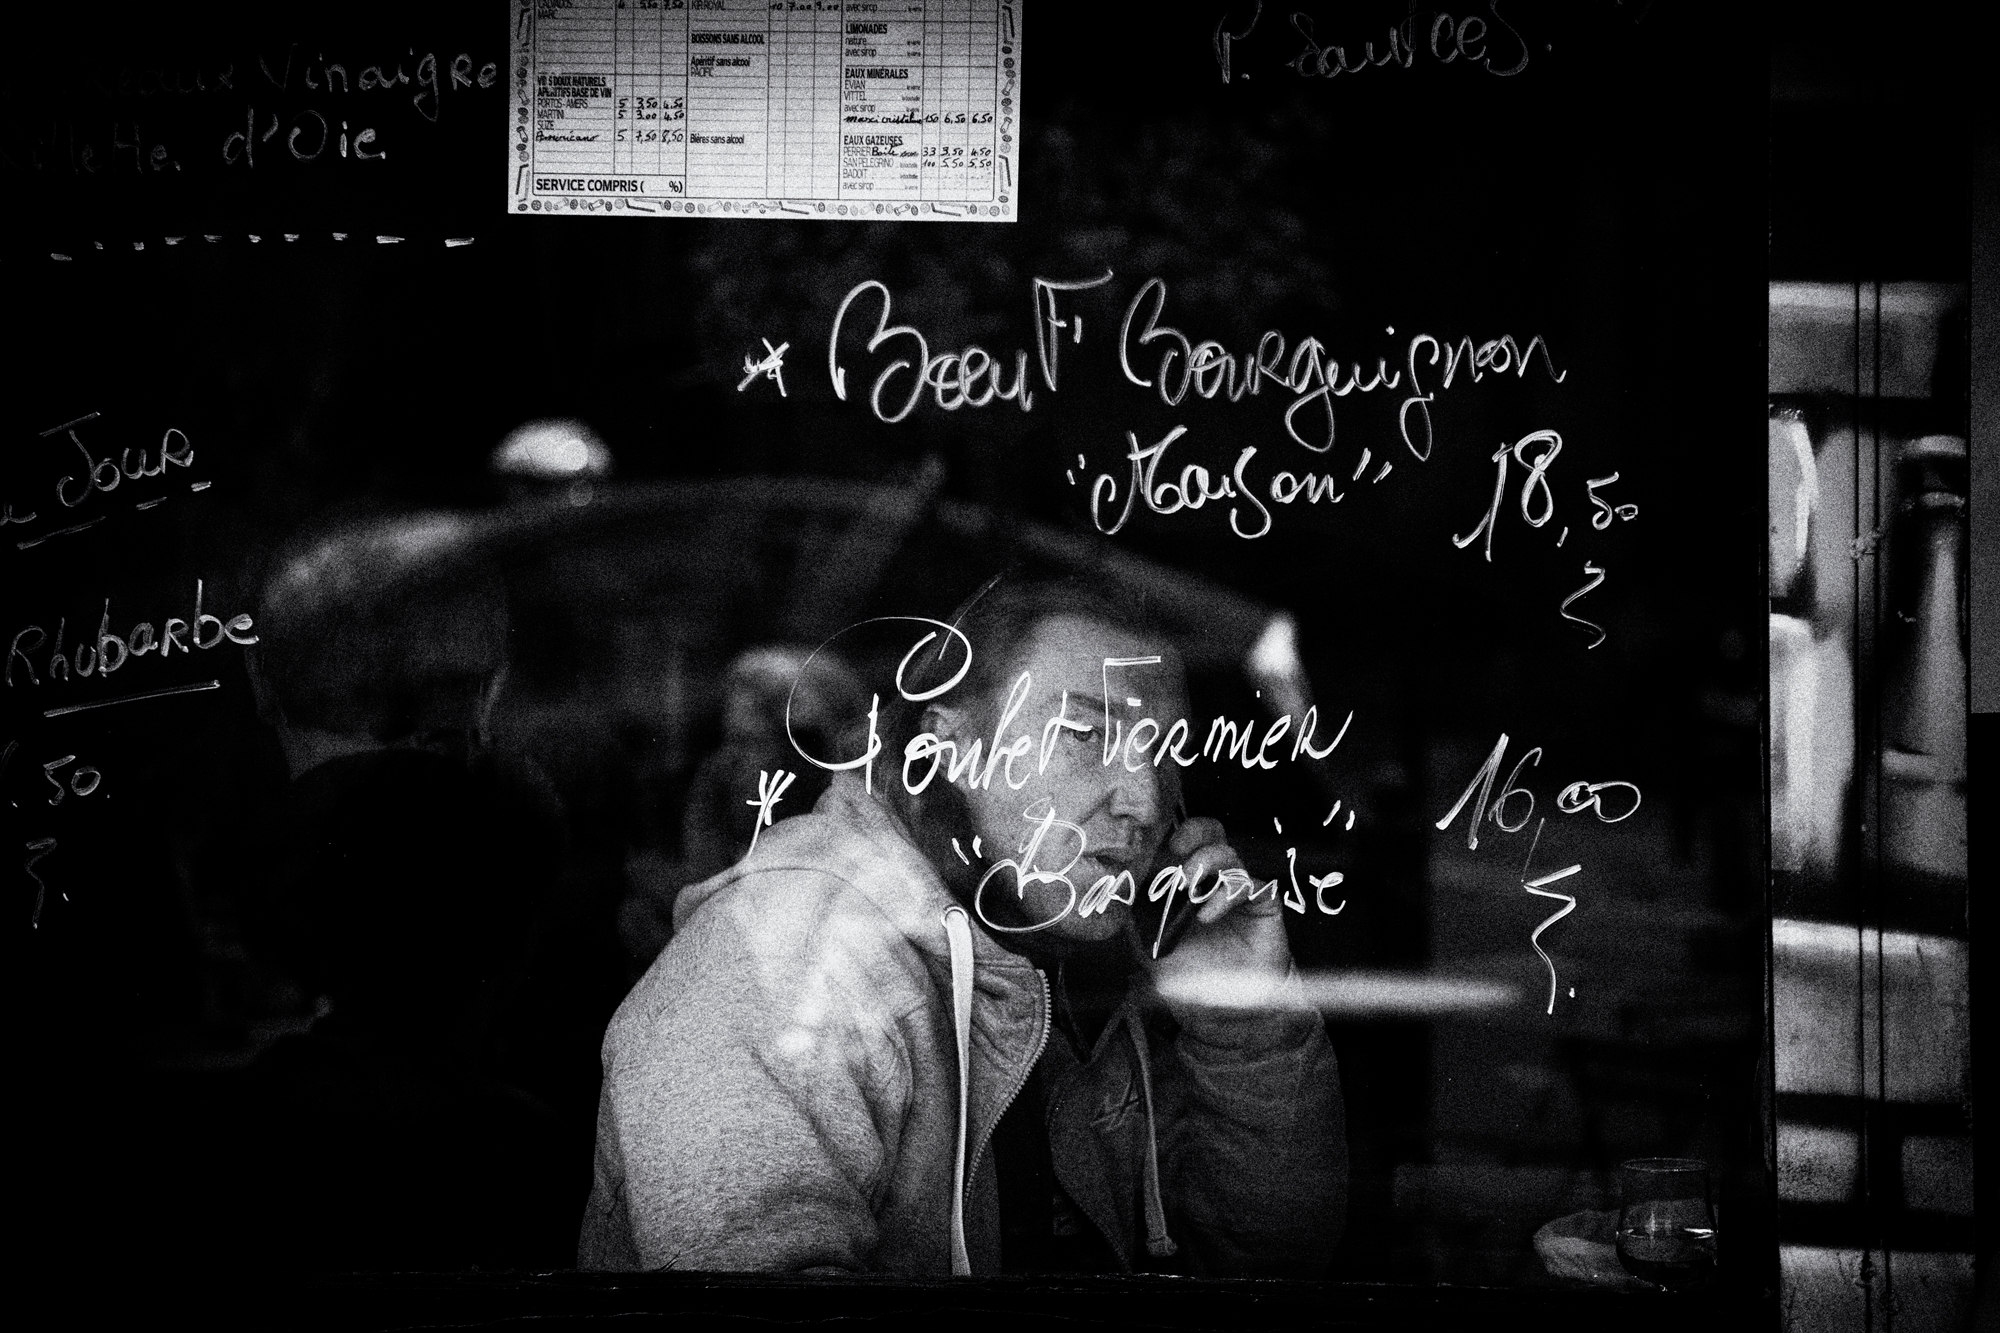 Vinaigre
d'Oie
Jour
Rhubarbe
50
MARC
VINS DOUX NATURELS
APÉRITIFS BASE DE VIN
PORTOS-AMERS 5 3.50 4.50
MARTINI 5 3.00 4.50
SUZE
Americano 5 7,50 8,50
SERVICE COMPRIS ( %)
KIR ROYAL 10 7.00 9.00
BOISSONS SANS ALCOOL
Apéritif sans alcool
PACIFIC
Bières sans alcool
avec sirop
LIMONADES
nature
avec sirop
EAUX MINÉRALES
EVIAN
VITTEL
avec sirop
150 6,50 6.50
EAUX GAZEUSES
PERRIER 33 3.50 4.50
SAN PELEGRINO 100 5.50 5.50
BADOIT
avec sirop
* Bœuf Bourguignon
"Maison" 18,50
* Poulet Fermier
"Basquaise" 16,00